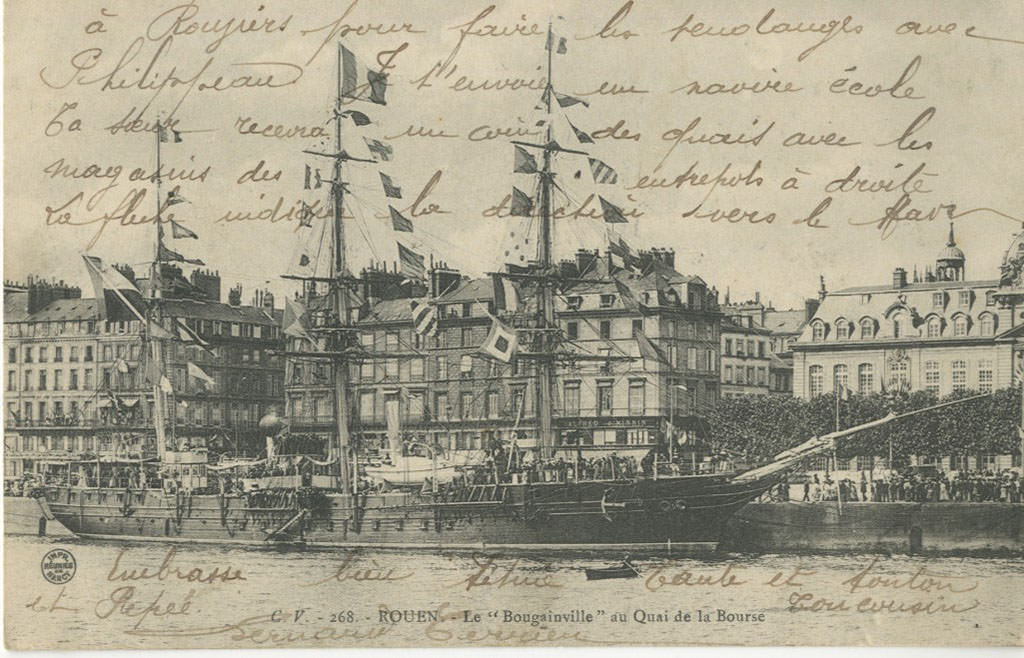 à Rougiers pour faire les vendanges avec
Philippeau Je t'envoie un navire école
Ta sœur recevra un coin des quais avec les
magasins des entrepots à droite
La flèche indique la direction vers le Havre
IMPR.
RÉUNIES
DE
NANCY
Embrasse bien Titine Tante et Tonton
et Pépée. Ton cousin
C. V. - 268. - ROUEN. - Le "Bougainville" au Quai de la Bourse
Fernand